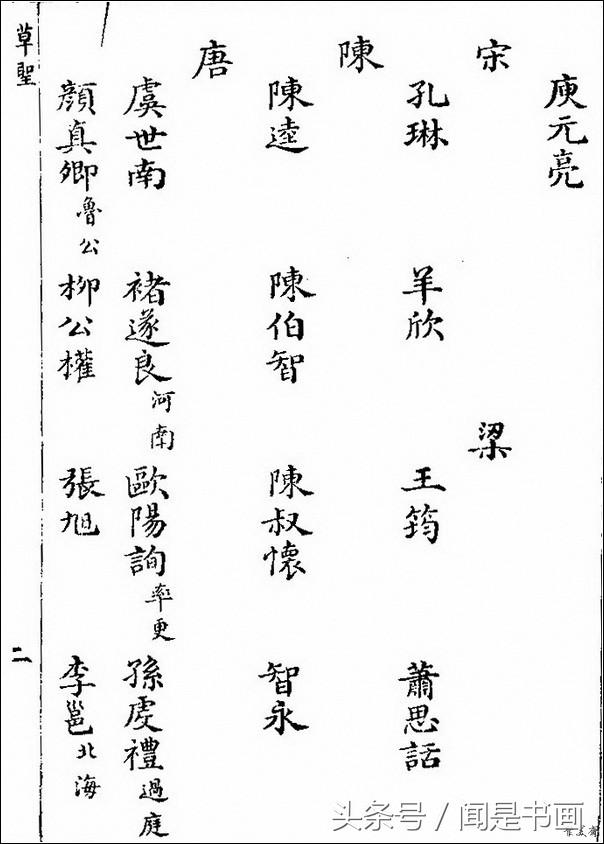 庾元亮
宋 梁
孔琳 羊欣 王筠 蕭思話
陳
陳逵 陳伯智 陳叔懷 智永
唐
虞世南 褚遂良河南 歐陽詢率更 孫虔禮過庭
顏真卿魯公 柳公權 張旭 李邕北海
草聖 二
头条号 / 闻是书画